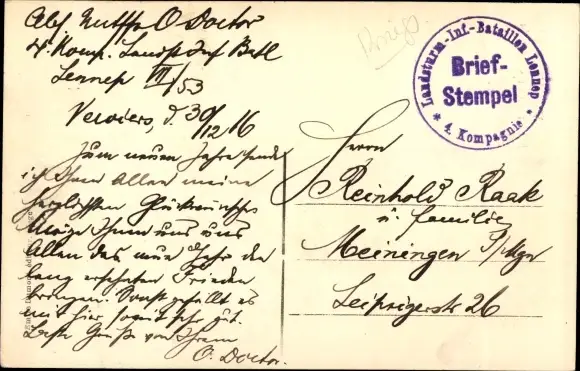 O Doctor
4. Komp. Landst Inf Batl
Lennep VII/53
Verviers, d. 30/12 16
Zum neuen Jahre sende
ich Ihnen Allen meine
herzlichsten Glückwünsche
Möge Ihnen uns uns
Allen das neue Jahr den
lang ersehnten Frieden
bringen. Sonst gefällt es
mir hier soweit sehr gut.
Beste Grüße von Ihrem
O. Doctor.
Landsturm-Inf.-Bataillon Lennep
Brief-
Stempel
* 4. Kompagnie *
Herrn
Reinhold Raak
u. Familie
Meiningen S/Mgn
Leipzigerstr 26